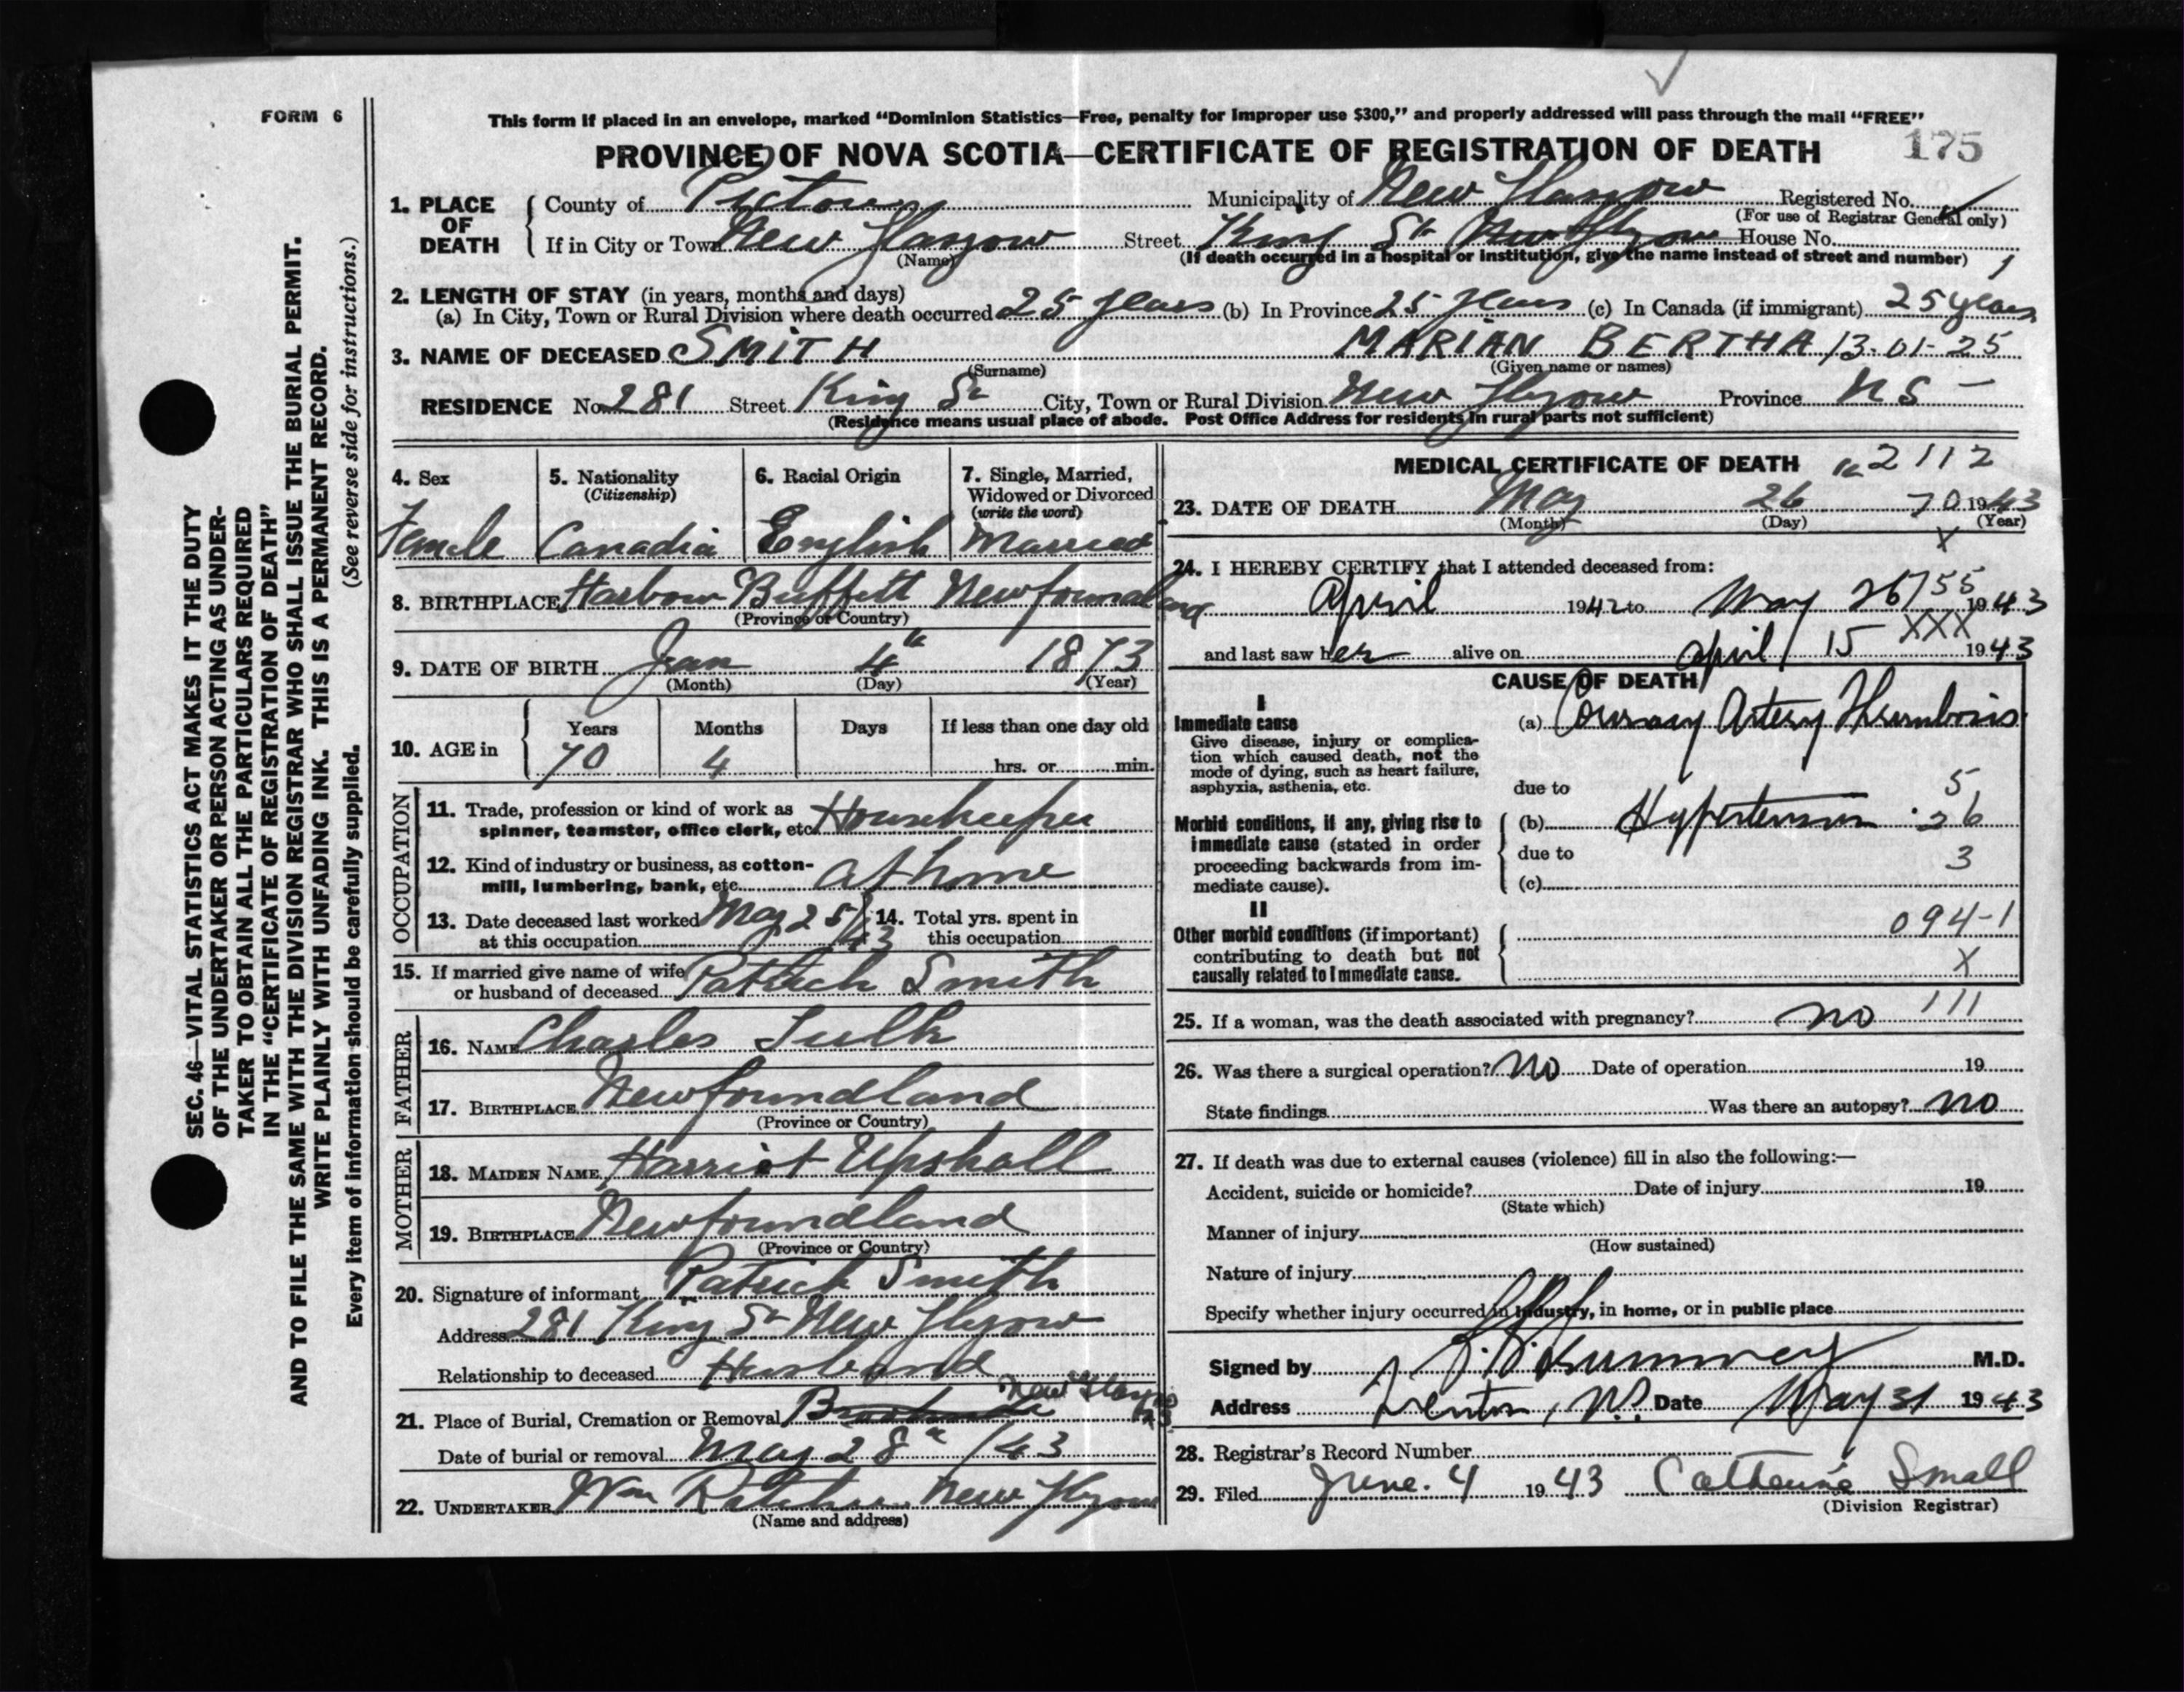 FORM 6
This form if placed in an envelope, marked "Dominion Statistics—Free, penalty for improper use $300," and properly addressed will pass through the mail "FREE"
PROVINCE OF NOVA SCOTIA—CERTIFICATE OF REGISTRATION OF DEATH 175
1. PLACE OF DEATH { County of Pictou Municipality of New Glasgow Registered No.
(For use of Registrar General only)
If in City or Town New Glasgow Street King St New Glasgow House No.
(Name) (If death occurred in a hospital or institution, give the name instead of street and number)
2. LENGTH OF STAY (in years, months and days)
(a) In City, Town or Rural Division where death occurred 25 years (b) In Province 25 years (c) In Canada (if immigrant) 25 years
3. NAME OF DECEASED SMITH MARIAN BERTHA 13-01-25
(Surname) (Given name or names)
RESIDENCE No. 281 Street King St City, Town or Rural Division New Glasgow Province N S —
(Residence means usual place of abode. Post Office Address for residents in rural parts not sufficient)
4. Sex 5. Nationality (Citizenship) 6. Racial Origin 7. Single, Married, Widowed or Divorced (write the word)
Female Canadia English Married
8. BIRTHPLACE Harbour Buffett Newfoundland
(Province or Country)
9. DATE OF BIRTH Jan 4th 1873
(Month) (Day) (Year)
10. AGE in { Years Months Days If less than one day old
70 4 hrs. or min.
OCCUPATION
11. Trade, profession or kind of work as spinner, teamster, office clerk, etc. Housekeeper
12. Kind of industry or business, as cotton-mill, lumbering, bank, etc. at home
13. Date deceased last worked at this occupation May 25/43 14. Total yrs. spent in this occupation
15. If married give name of wife or husband of deceased Patrick Smith
FATHER
16. NAME Charles Tulk
17. BIRTHPLACE Newfoundland
(Province or Country)
MOTHER
18. MAIDEN NAME Harriet Upshall
19. BIRTHPLACE Newfoundland
(Province or Country)
20. Signature of informant Patrick Smith
Address 281 King St New Glasgow
Relationship to deceased Husband
21. Place of Burial, Cremation or Removal New Glasgow
Date of burial or removal May 28th /43
22. UNDERTAKER Wm New Glasgow
(Name and address)
MEDICAL CERTIFICATE OF DEATH 2112
23. DATE OF DEATH May 26 70 1943
(Month) (Day) (Year)
X
24. I HEREBY CERTIFY that I attended deceased from:
April 1942 to May 26 755 1943
and last saw her alive on April 15 XXX 1943
CAUSE OF DEATH
I
Immediate cause (a) Coronary Artery Thrombosis
Give disease, injury or complication which caused death, not the mode of dying, such as heart failure, asphyxia, asthenia, etc.
due to 5
Morbid conditions, if any, giving rise to immediate cause (stated in order proceeding backwards from immediate cause).
(b) Hypertension 26
due to 3
(c)
II
Other morbid conditions (if important) contributing to death but not causally related to immediate cause.
094-1
X
25. If a woman, was the death associated with pregnancy? no 111
26. Was there a surgical operation? No Date of operation 19
State findings Was there an autopsy? no
27. If death was due to external causes (violence) fill in also the following:—
Accident, suicide or homicide? Date of injury 19
(State which)
Manner of injury
(How sustained)
Nature of injury
Specify whether injury occurred in industry, in home, or in public place
Signed by M.D.
Address Trenton, N.S. Date May 31 1943
28. Registrar's Record Number
29. Filed June. 4 1943 Catherine Small
(Division Registrar)
SEC. 46—VITAL STATISTICS ACT MAKES IT THE DUTY
OF THE UNDERTAKER OR PERSON ACTING AS UNDER-
TAKER TO OBTAIN ALL THE PARTICULARS REQUIRED
IN THE "CERTIFICATE OF REGISTRATION OF DEATH"
AND TO FILE THE SAME WITH THE DIVISION REGISTRAR WHO SHALL ISSUE THE BURIAL PERMIT.
WRITE PLAINLY WITH UNFADING INK. THIS IS A PERMANENT RECORD.
(See reverse side for instructions.)
Every item of information should be carefully supplied.